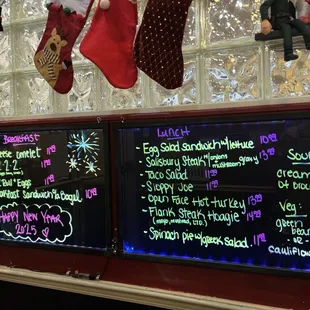 BREAKFAST
eese omelet 11.99
2.2. 11.99
" Eggs 10.99
akfast Sandwich on Bagel 10.99
HAPPY NEW YEAR
2025
LUNCH
Egg Salad Sandwich w/lettuce 10.99
Salisbury Steak w/onions mushroom gravy 13.99
Taco Salad 11.99
Sloppy Joe 11.99
Open Face Hot Turkey 13.99
Flank Steak Hoagie 14.99
Spinach pie w/greek salad 11.99
Sou
cream
of broc
Veg:
green
beans
- or -
cauliflow